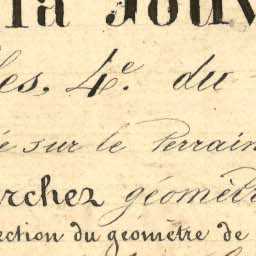 la Jouv
les, 4e. du
é sur le Terrain
archez géomèt
ection du géometre de